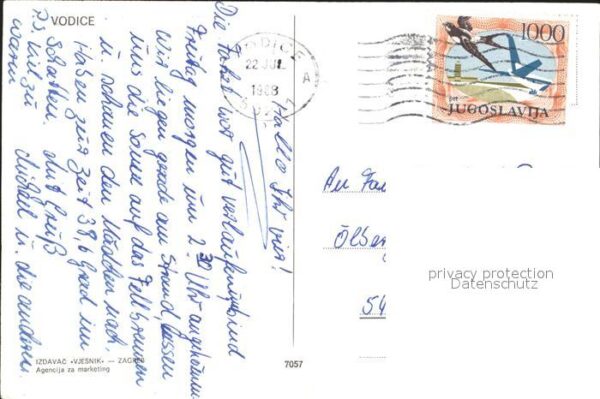 VODICE
VODICE
22 JUL
1988
A
1000
ptt
JUGOSLAVIJA
Hallo Ihr vier!
Die Fahrt ist gut verlaufen, sind
Freitag morgen um 2 30 Uhr angekomm.
Wir liegen grade am Strand, lassen
uns die Sonne auf das Fell brennen
u. schauen den Mädchen nach.
Haben zur Zeit 38,6 Grad im
Schatten.
PS, viel zu
warm
Gruß
Michael u. die anderen
An Fam
5
privacy protection
Datenschutz
IZDAVAČ »VJESNIK« — ZAGREB
Agencija za marketing
7057